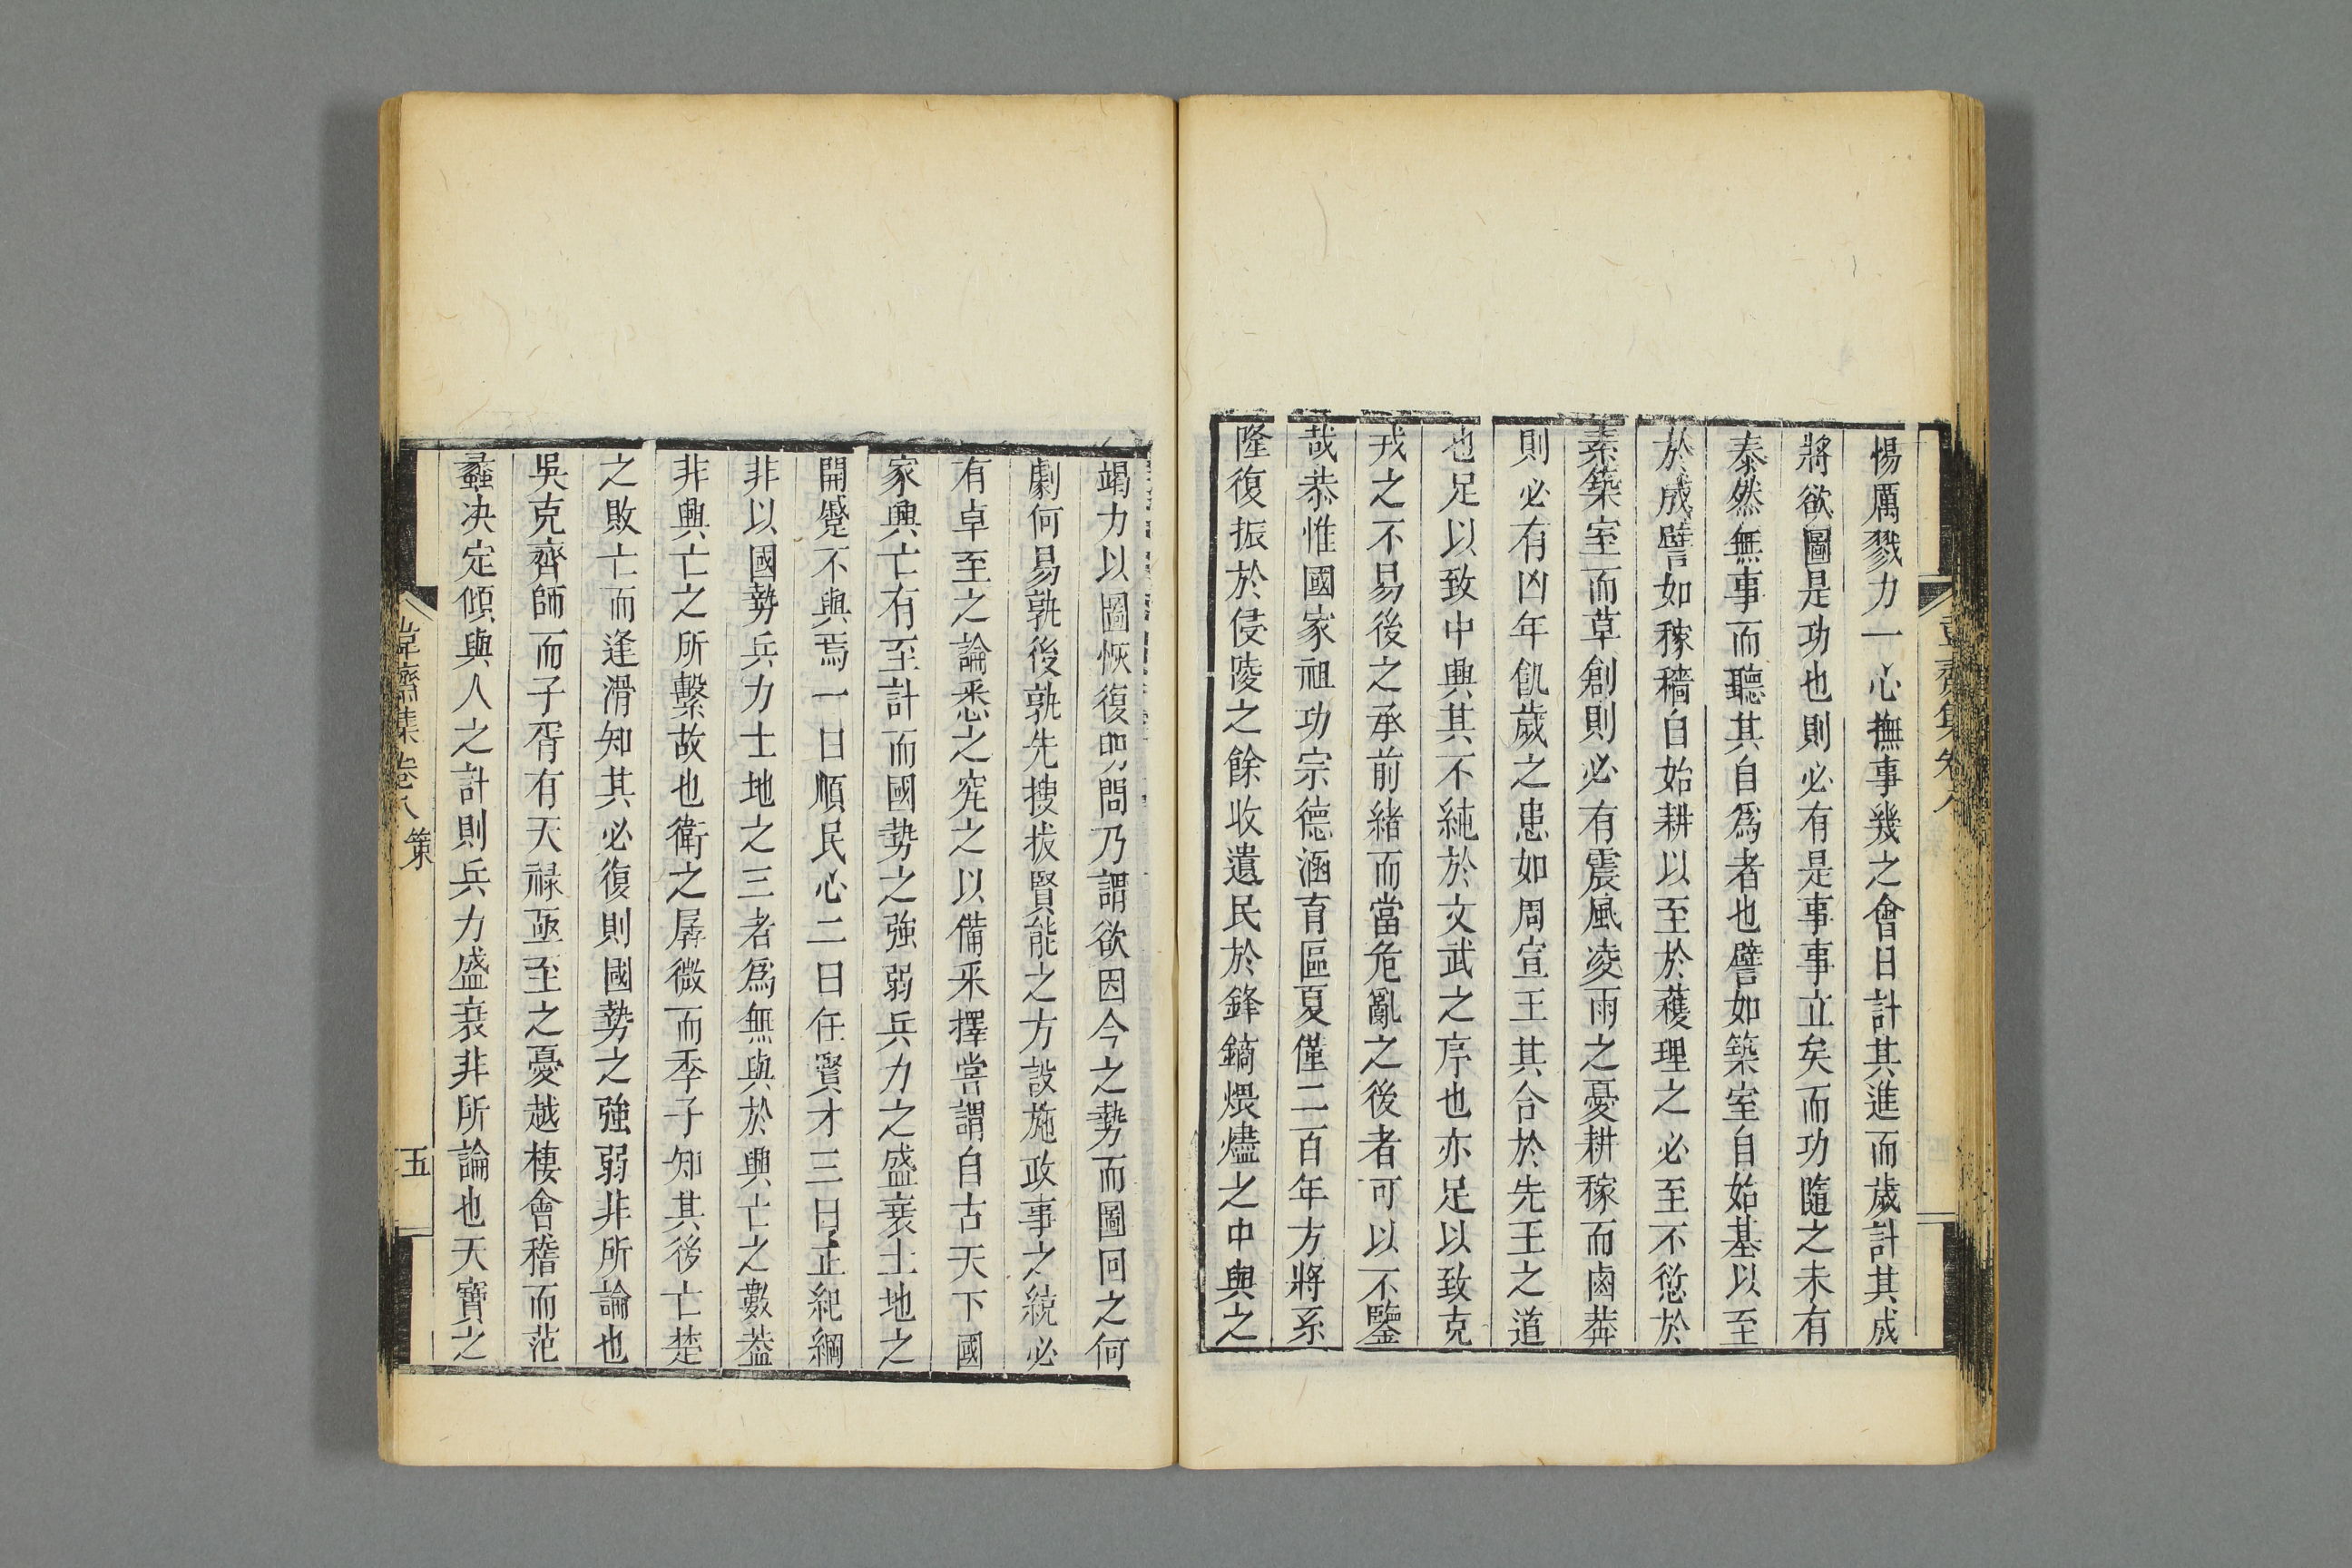 惕厲戮力一心撫事幾之會日計其進而歲計其成
將欲圖是功也則必有是事事立矣而功隨之未有
泰然無事而聽其自爲者也譬如築室自始基以至
於成譬如稼穡自始耕以至於穫理之必至不愆於
素築室而草創則必有震風凌雨之憂耕稼而鹵莽
則必有凶年飢歲之患如周宣王其合於先王之道
也足以致中興其不純於文武之序也亦足以致克
戎之不易後之承前緒而當危亂之後者可以不鑒
哉恭惟國家祖功宗德涵育區夏僅二百年方將系
隆復振於侵陵之餘收遺民於鋒鏑煨燼之中與之
竭力以圖恢復明問乃謂欲因今之勢而圖回之何
劇何易孰後孰先搜拔賢能之方設施政事之統必
有卓至之論悉之究之以備采擇嘗謂自古天下國
家興亡有至計而國勢之強弱兵力之盛衰土地之
開蹙不與焉一曰順民心二曰任賢才三曰正紀綱
非以國勢兵力土地之三者爲無與於興亡之數葢
非興亡之所繫故也衛之孱微而季子知其後亡楚
之敗亡而逢滑知其必復則國勢之強弱非所論也
吳克齊師而子胥有天祿亟至之憂越棲會稽而范
蠡决定傾與人之計則兵力盛衰非所論也天寶之
韋齋集卷八
策
五